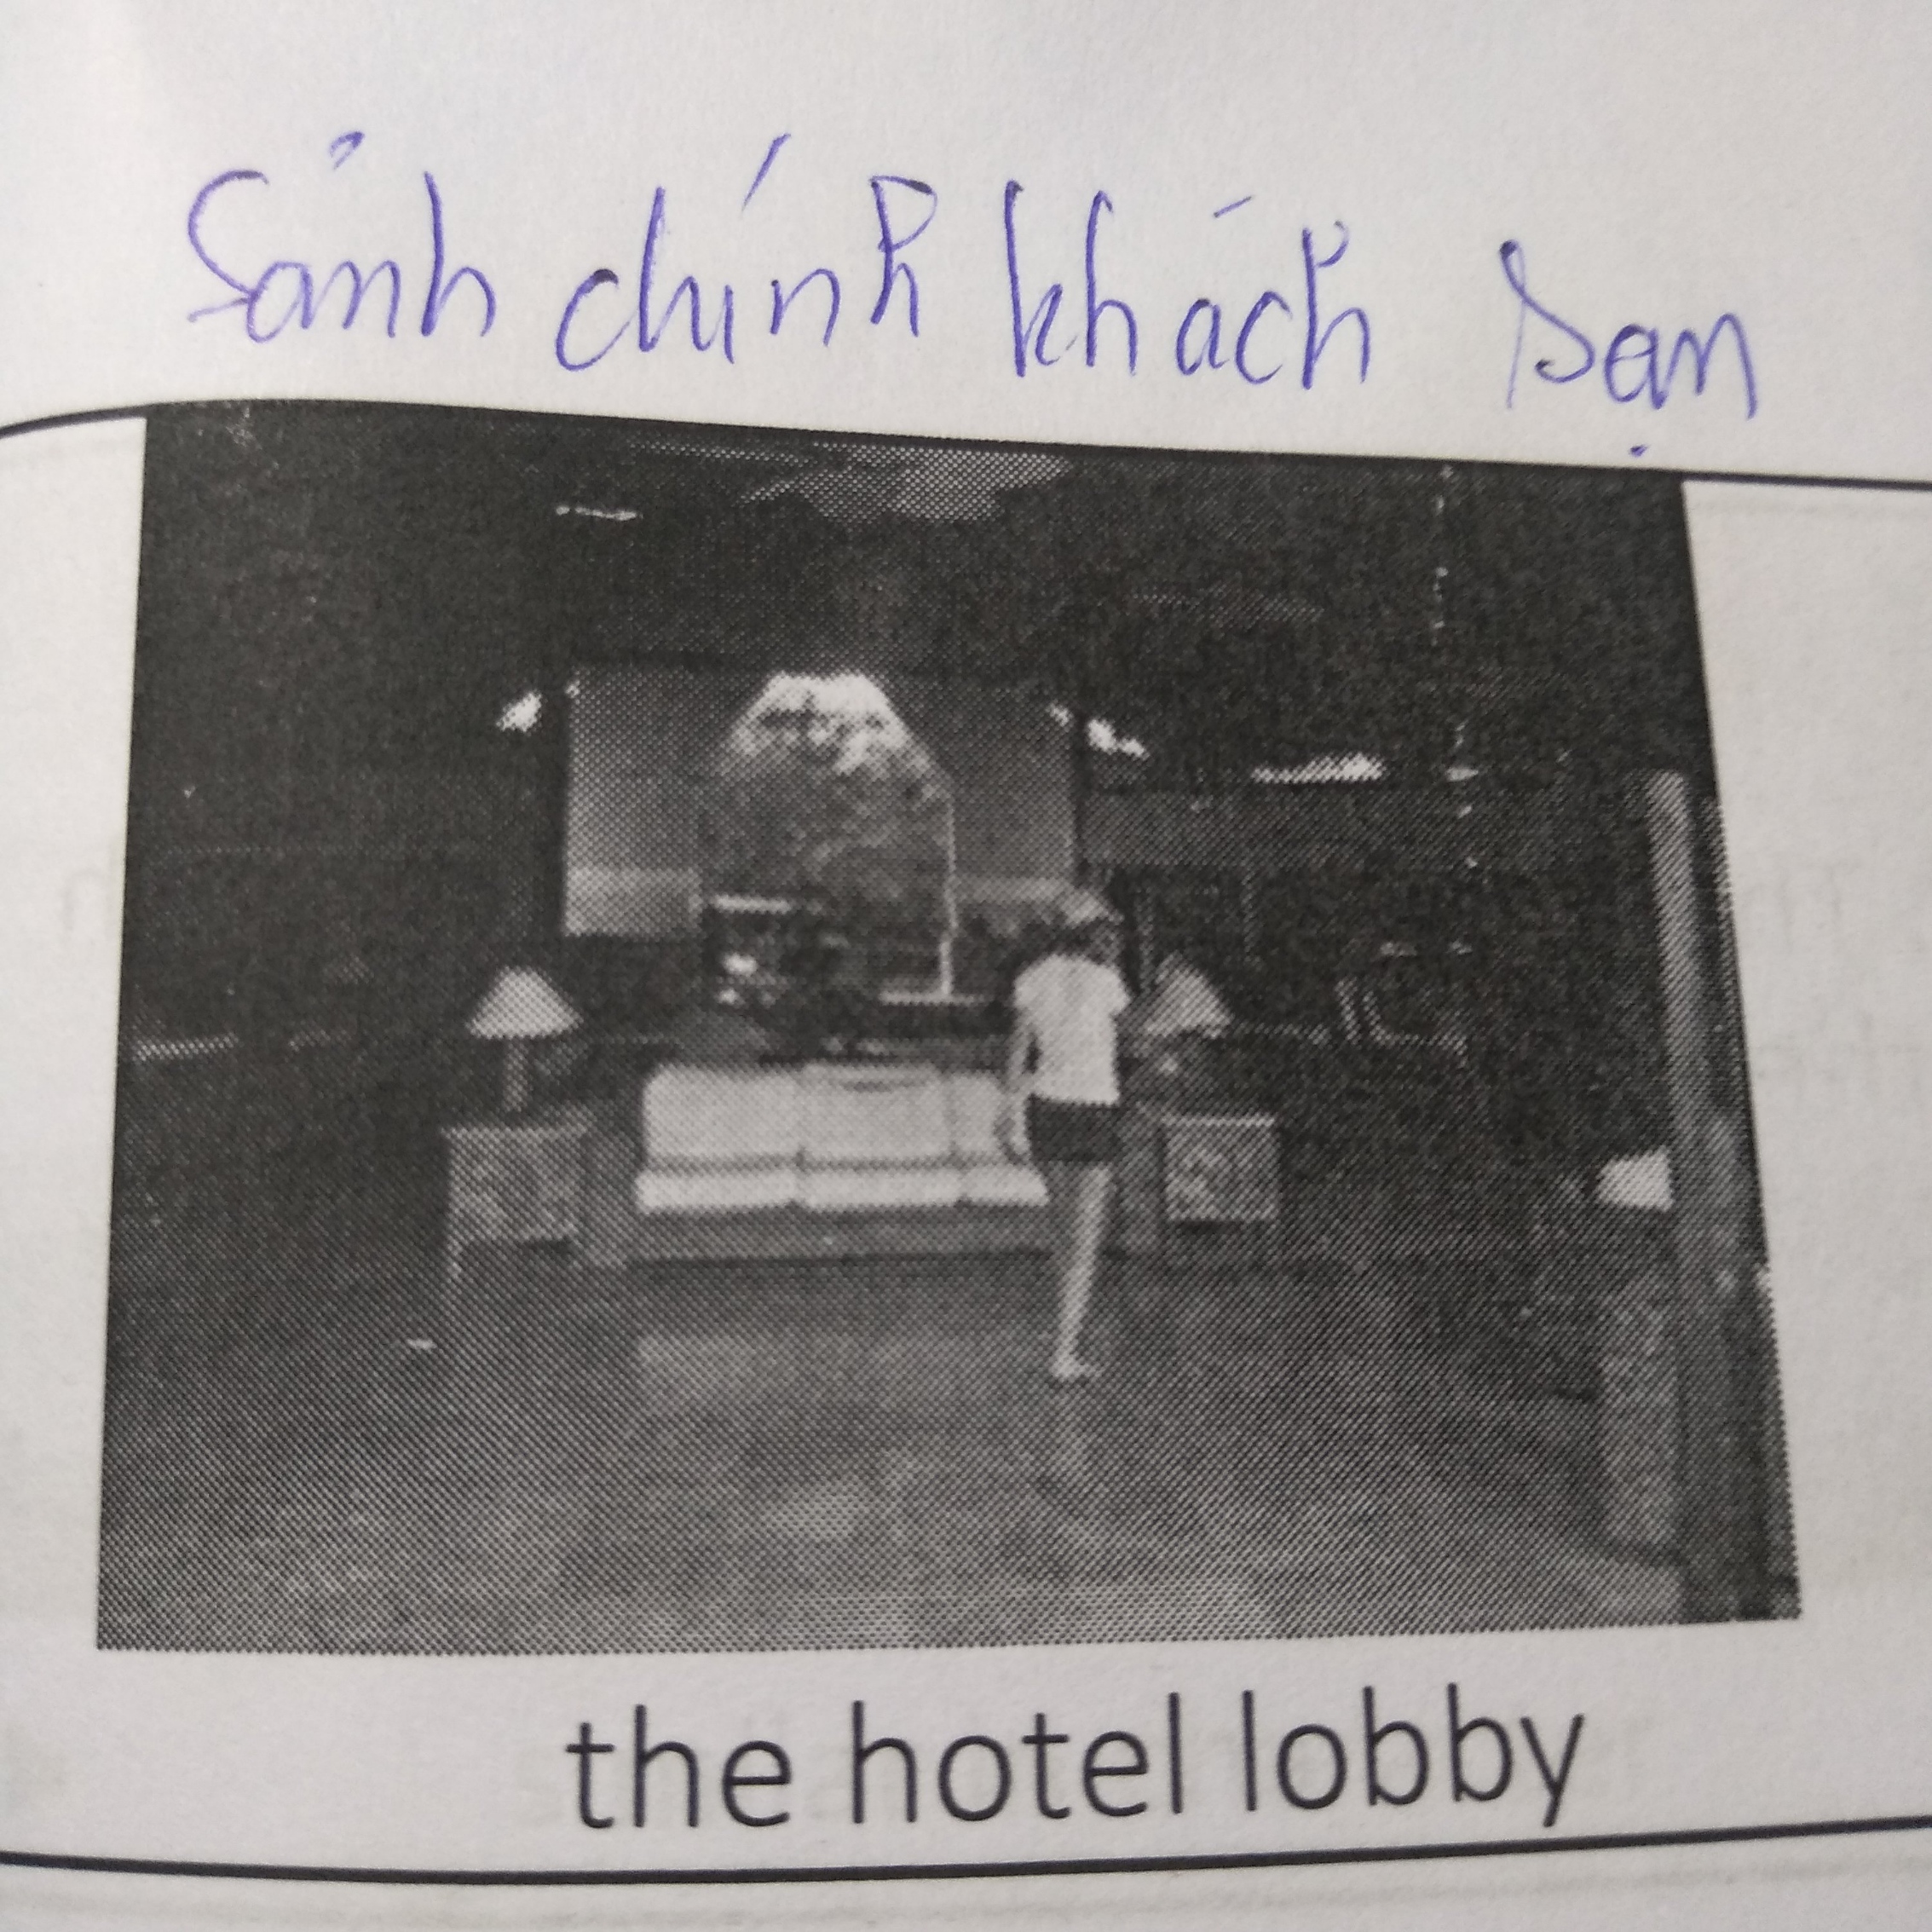 Sảnh chính khách sạn
the hotel lobby